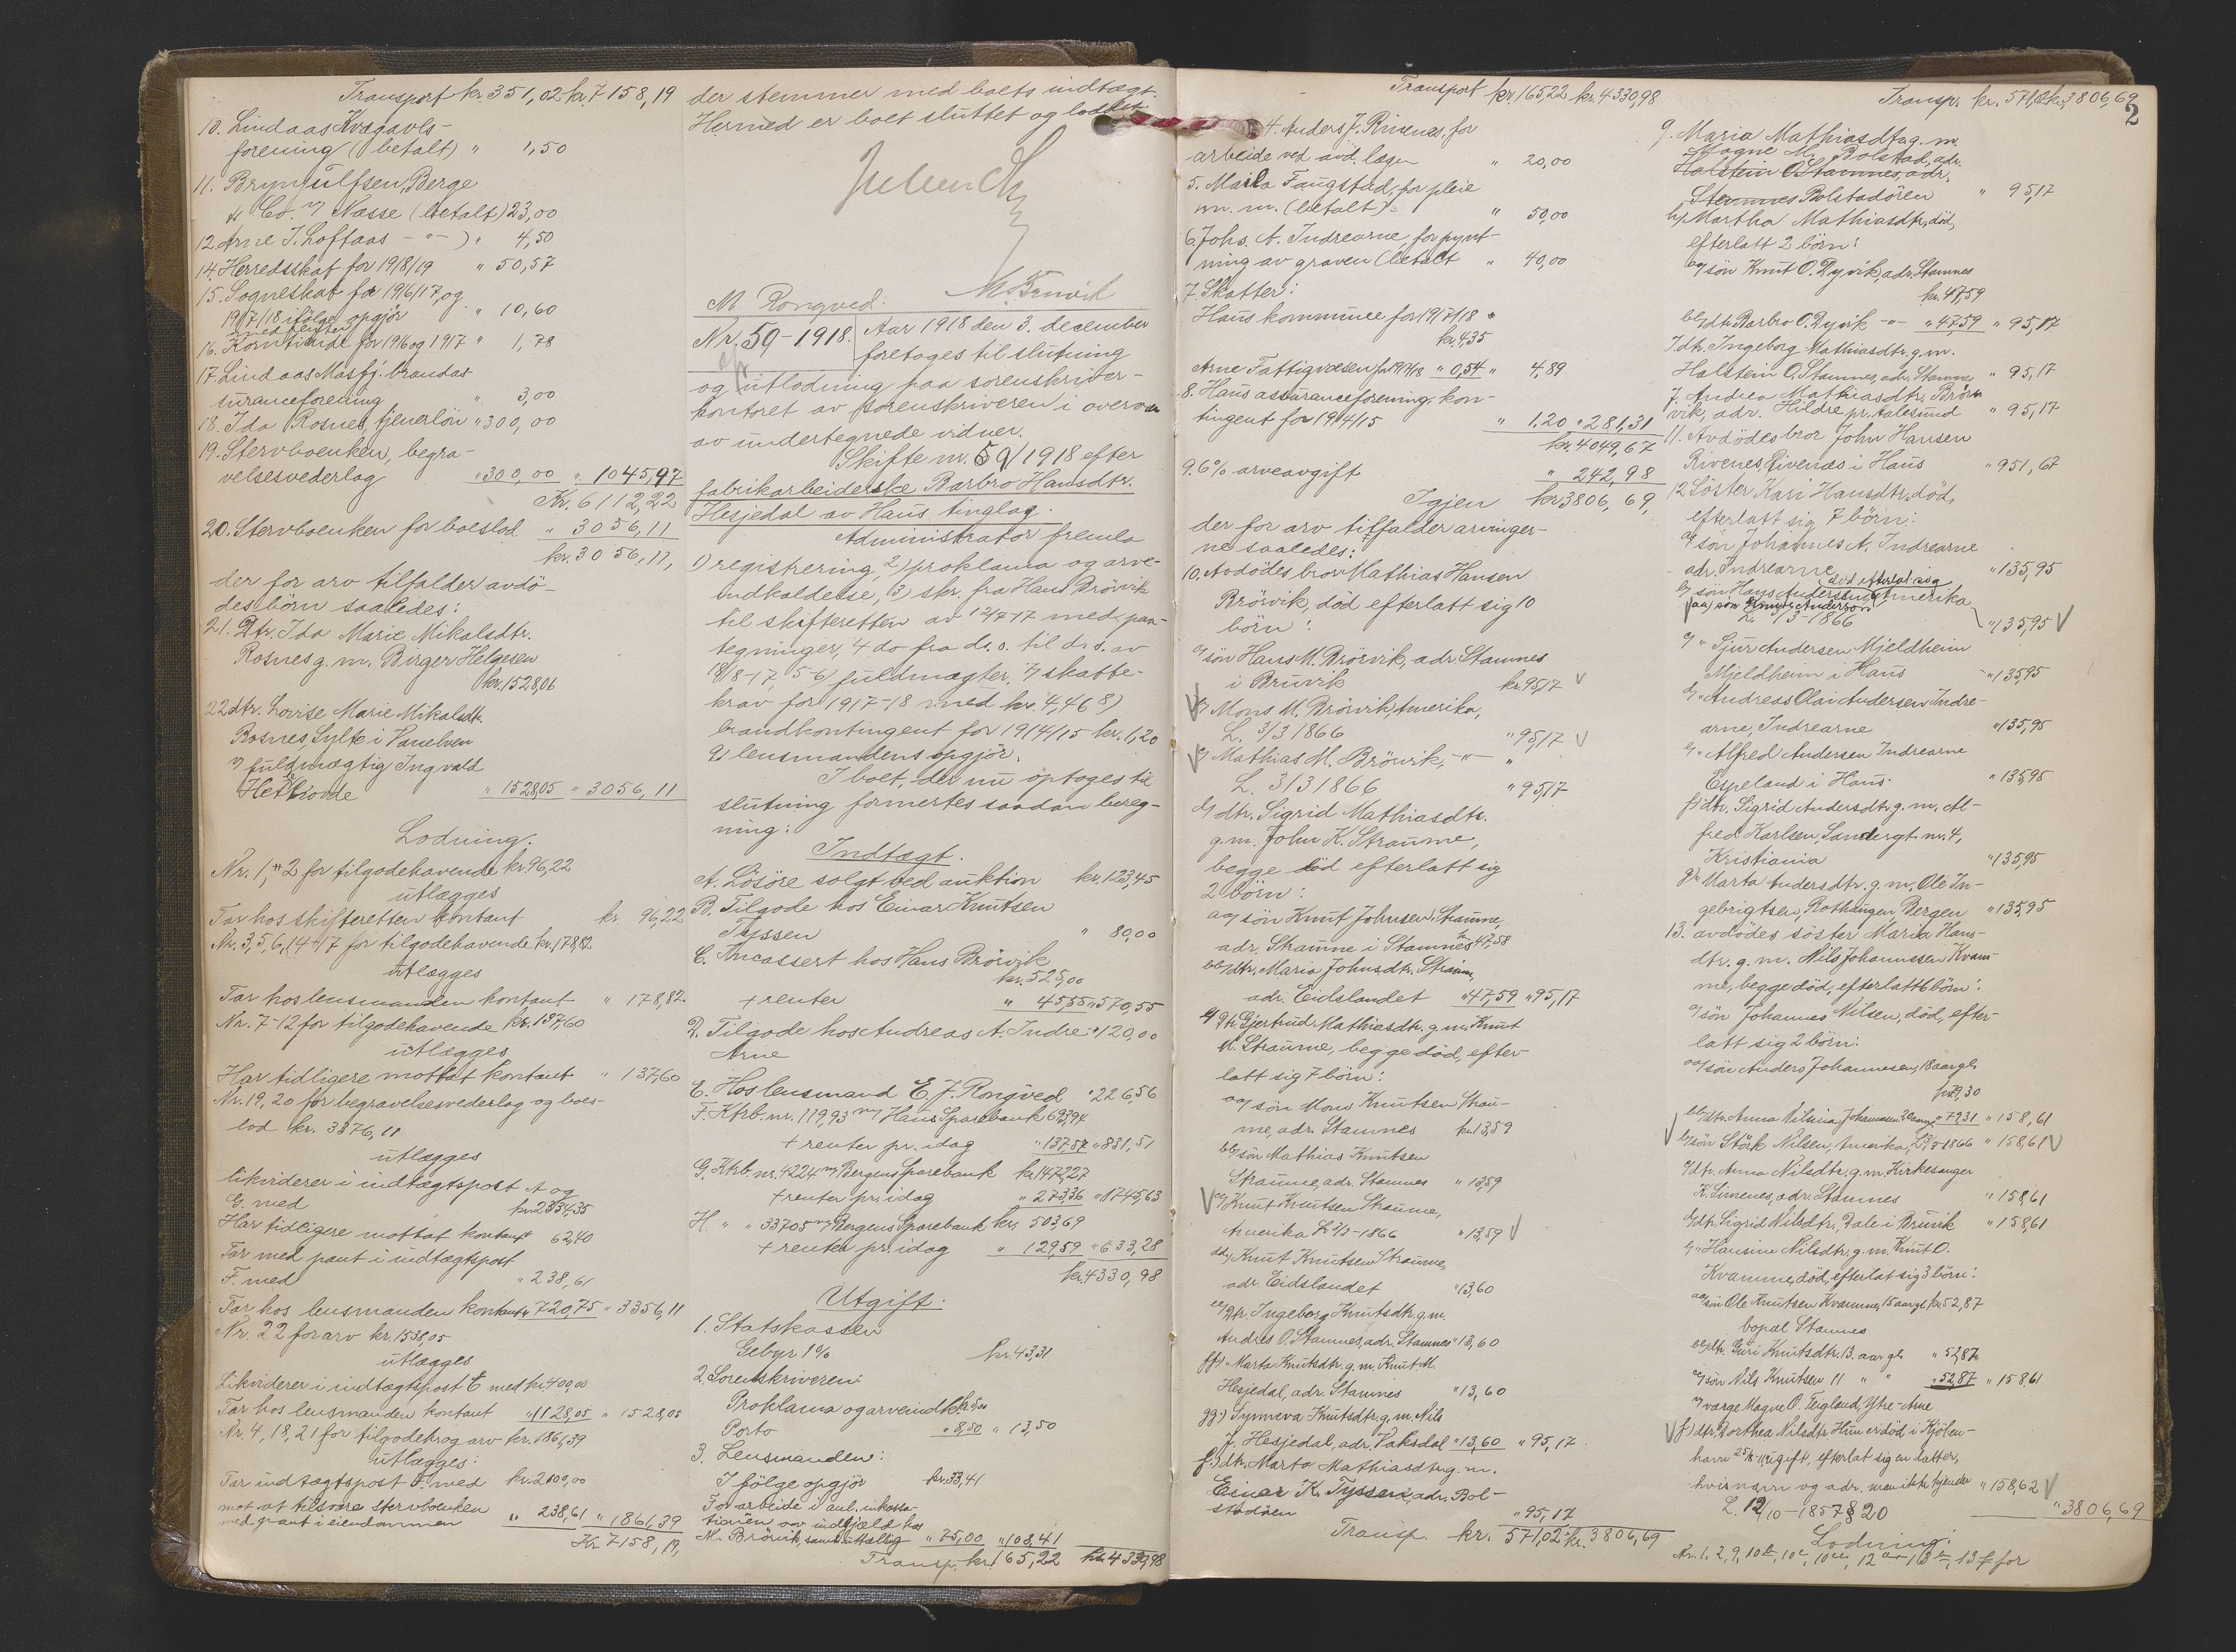 Transport kr. 351,02 kr. 7158,19
10. Lindaas Kvægavls-
forening (betalt) " 1,50
11. Brynjulfsen, Berge
& Co. v/ Næsse (betalt) 23,00
12. Arne J. Loftaas - " - ) " 4,50
14. Herredsskat for 1918/19 " 50,57
15. Sogneskat for 1916/17, og
1917/18 ifölge opgjör " 10,60
med renter
16. Korntiende for 1916 og 1917 " 1,78
17. Lindaas Masfj. brandas-
suranceforening " 3,00
18. Ida Rosnes, tjenerlön " 300,00
19. Stervboenken, begra-
velsesvederlag " 300,00 " 1045,97
Kr. 6112,22
20. Stervboenken for boeslod " 3056,11
kr. 3056,11,
der for arv tilfalder avdö-
des börn saaledes:
21. Dtr. Ida Marie Mikalsdtr.
Rosnes g. m. Birger Helgesen
kr. 1528,06
22 dtr. Lovise Marie Mikalsdtr.
Rosnes, Sylte i Vanelven
v/ fuldmægtig Ingvald
" 1528,05 " 3056,11
Lodning.
Nr. 1, & 2 for tilgodehavende kr. 96,22
utlægges
Tar hos skifteretten kontant kr. 96,22
Nr. 3, 5, 6, 14-17 for tilgodehavende kr. 178,82
utlægges
Tar hos lensmanden kontant " 178,82
Nr. 7-12 for tilgodehavende kr. 137,60
utlægges
Har tidligere mottat kontant " 137,60
Nr. 19, 20 for begravelsesvederlag og boes-
lod kr. 3376,11
utlægges
likviderer i indtægtspost A og
G. med kr. 2334,35
Har tidligere mottat kontant 62,40
Tar med pant i indtægtspost
F. med " 238,61
Tar hos lensmanden kontant " 720,75 " 3356,11
Nr. 22 for arv kr. 1538,05
utlægges
Likviderer i indtægtspost E med kr. 400,00
Tar hos lensmanden kontant " 1128,05 " 1528,05
Nr. 4, 18, 21 for tilgodeh. og arv kr. 1861,39
utlægges:
Tar indtægtspost F. med kr. 2100,00
mot at tilsvare stervboenken
med pant i eiendommen " 238,61 " 1861,39
Kr. 7158,19,
der stemmer med boets indtægt.
Hermed er boet sluttet og loddet.
M. Rongved. M. Bruvik
Nr. 59-1918. Aar 1918 den 3. december
foretoges til slutning
og utlodning paa sorenskriver-
kontoret av sorenskriveren i overvær
av undertegnede vidner.
Skifte nr. 59/1918 efter
fabrikarbeiderske Barbro Hansdtr.
Hesjedal av Haus tinglag.
Administrator fremla
1) registrering, 2) proklama og arve-
indkaldelse, 3) skr. fra Hans Brörvik
til skifteretten av 12/7-17 med paa-
tegninger, 4 do fra d. s. til d. s. av
18/8-17, 5-6 fuldmagter, 7) skatte-
krav for 1917-18 med kr. 4,46 8)
brandkontingent for 1914/15 kr. 1,20
9) lensmandens opgjör.
I boet, der nu optoges til
slutning formertes saadan bereg-
ning:
Indtægt.
A. Lösöre solgt ved auktion kr. 123,45
B. Tilgode hos Einar Knutsen
Tyssen " 80,00
C. Incassert hos Hans Brörvik
kr. 525,00
+ renter " 45,55 " 570,55
D. Tilgode hos Andreas A. Indre- " 120,00
Arne
E. Hos lensmand E. J. Rongved " 226,56
F. Ktrb. nr. 119,93 m/ Haus Sparebank 693,94
+ renter pr. idag " 137,57 " 831,51
G. Ktrb. nr. 4224 m/ Bergens Sparebank kr. 1472,27
+ renter pr. idag " 273,36 " 1745,63
H. " " 33705 m/ Bergens Sparebank kr. 503,69
+ renter pr. idag " 129,59 " 633,28
kr. 4330,98
Utgift.
1. Statskassen
Gebyr 1% kr. 43,31
2. Sorenskriveren:
Proklama og arveindk.
Porto " 8,50 " 13,50
3. Lensmanden:
I fölge opgjör kr. 33,41
For arbeide i anl. inkassa-
tionen av indgjæld hos
M. Brörvik, samt " 75,00 " 108,41
Transp. kr. 165,22 kr. 4330,98
Transport kr. 165,22 kr. 4330,98
4. Anders J. Rivenes, for
arbeide ved avd. lægen " 20,00
5. Maria Faugstad, for pleie
m. m. (betalt) " 50,00
6. Johs. A. Indrearne, for pynt-
ning av graven (betalt " 40,00
7. Skatter:
Haus kommune for 1917/18
kr. 4,35
Arne Fattigvæsen for 1917/18 " 0,54 " 4,89
8. Haus assuranceforening, kon-
tingent for 1914/15 " 1,20 " 281,31
kr. 4049,67
9. 6% arveavgift " 242,98
Igjen kr. 3806,69,
der for arv tilfalder arvinger-
ne saaledes:
10. Avdödes bror Mathias Hansen
Brörvik, död efterlatt sig 10
börn:
a/ sön Hans M. Brörvik, adr. Stamnes
i Bruvik kr. 95,17 V
V b/ Mons M. Brörvik, Amerika,
L. 3/3 1866 " 95,17 V
V c/ Mathias M. Brörvik, - " - "
L. 3/3 1866 " 95,17
d/ dtr. Sigrid Mathiasdtr.
g. m. John K. Straume,
begge död efterlatt sig
2 börn:
aa/ sön Knut Johnsen Straume,
adr. Straume i Stamnes kr. 47,58
bb/ dtr. Maria Johnsdtr. Straume,
adr. Eidslandet " 47,59 " 95,17
e) Dtr. Gjertrud Mathiasdtr. g. m. Knut
M. Straume, begge död, efter-
latt sig 7 börn:
aa/ sön Mons Knutsen Strau-
me, adr. Stamnes kr. 13,59
bb/ sön Mathias Knutsen
Straume, adr. Stamnes " 13,59
V cc/ Knut Knutsen Straume,
Amerika L 3/3-1866 " 13,59 V
dd/ Knut Knutsen Straume,
adr. Eidslandet " 13,60
ee/ Dtr. Ingeborg Knutsdtr. g. m.
Andres O. Stamnes, adr. Stamnes " 13,60
ff) " Marta Knutsdtr. g. m. Knut M.
Hesjedal, adr. Stamnes " 13,60
gg.) Synneva Knutsdtr. g. m. Nils
J. Hesjedal, adr. Vaksdal " 13,60 " 95,17
f) dtr. Marta Mathiasdtr. g. m.
Einar K. Tyssen, adr. Bol-
stadøen " 95,17
Transp. kr. 571,02 kr. 3806,69
Transp. kr. 571,02 kr. 3806,69
2
g. Maria Mathiasdtr. g. m.
Magne M. Bolstad, adr.
Halstein O. Stamnes, adr.
Stamnes Bolstadören " 95,17
h/ Martha Mathiasdtr. död,
efterlatt 2 börn:
aa/ sön Knut O. Dyvik, adr. Stamnes
kr. 47,59
bb/ dtr. Barbro O. Dyvik - " - " 47,59 " 95,17
I dtr. Ingeborg Mathiasdtr. g. m.
Halstein O. Stamnes, adr. Stamnes " 95,17
J. Andrea Mathiasdtr. Brör-
vik, adr. Hildre pr. Aalesund " 95,17
11. Avdödes bror John Hansen
Rivenes, Rivenæs i Haus " 951,67
12 Söster Kari Hansdtr. död,
efterlatt sig 7 börn:
a/ sön Johannes A. Indrearne
adr. Indrearne " 135,95
b/ sön Hans Andersen, Amerika
död efterlat sig
V aa) sön Andersen
L. 3/3-1866 " 135,95 V
c/ " Sjur Andersen Mjeldheim
Mjeldheim i Haus " 135,95
d/ " Andreas Olai Andersen Indre-
arne, Indrearne " 135,95
e/ " Alfred Andersen Indrearne
Espeland i Haus " 135,95
f) dtr. Sigrid Andersdtr. g. m. Al-
fred Karlsen, Sandergt. nr. 4,
Kristiania " 135,95
g) " Marta Andersdtr. g. m. Ole In-
gebrigtsen, Rothaugen, Bergen " 135,95
13. avdödes söster Maria Hans-
dtr. g. m. Nils Johannessen Kvam-
me, begge död, efterlatt 6 börn:
a/ sön Johannes Nilsen, död, efter-
latt sig 2 börn:
aa/ sön Anders Johannesen, 18 aar gl.
kr. 79,30
bb/ dtr. Anna Johannesen " 79,31 " 158,61
V b/ sön Störk Nilsen, Amerika, L 3/3-1866 " 158,61 V
c/ dtr. Anna Nilsdtr. g. m. Kirkesanger
K. Simenes, adr. Stamnes " 158,61
d/ dtr. Sigrid Nilsdtr., Dale i Bruvik " 158,61
e/ " Hansine Nilsdtr. g. m. Knut O.
Kvamme, död, efterlat sig 3 börn:
aa/ sön Ole Knutsen Kvamme, 15 aar gl. kr. 52,87
bopæl Stamnes
bb/ dtr. Guri Knutsdtr. 13. aar gl. " 52,87
cc/ sön Nils Knutsen 11 " " " 52,87 " 158,61
v/ verge Magne O. Teigland, Ytre-Arne
V f) dtr. Dorthea Nilsdtr. Hun er död i Kjöben-
havn gift, efterlat sig en datter,
hvis navn og adr. man ikke kjender " 158,62 V
L. 12/10-1857 § 20 " 3806,69
Lodning: